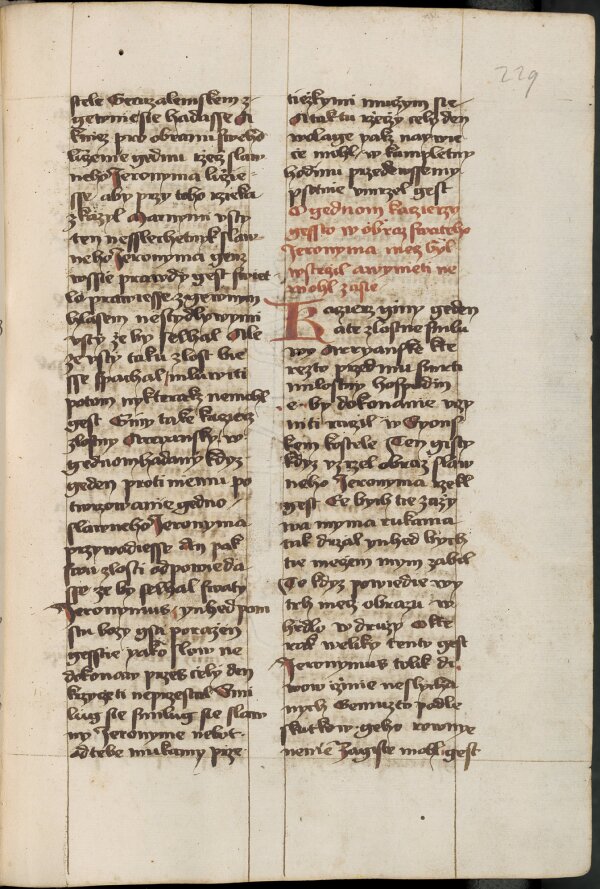 229
stele Geruzalemskem z
gewnie sie hadasse A
kniez pro obranu sweho
luzenie gedinu rzecz slaw
neho Jeronyma luzie
sse aby przy toho rzieka
zkazyl Marnymi vsty
ten nesslechetnyk slaw
neho Jeronyma genz
wssie prawdy gest swiet
lo prawiesse zgewnym
hlasem nestydlywymi
vsty ze by selhal Ale
ze vsty taku zlost bie
sse spachal mluwiti
potom nykterakz nemohl
gest Giny take kacierz
zlostny Arryansky w
gednom hadany kdyz
geden proti niemu po
twrzowanie gedno
slawneho Jeronyma
przywodiesse An pak
swu zlosti odpowieda
sse ze by selhal swaty
Jeronymus ynhed pom
stu bozy gsa porazen
gesstie pako slow ne
dokonaw przes cely den
krzyczeti neprzestal Smi
lug sie smilug sie slaw
ny Jeronyme nebot
od tebe mukamy prze
tiezkymi muczym sie
A tak tu rzeczy cely den
wolage pak naywie
ce mohl w kompletny
hodinu przede wssemy
psotnie vmrzel gest
O gednom kacierzy
gessto w obraz swateho
Jeronyma mecz byl
wstrczil a wynieti ne
mohl zasie
Kacierz giny geden
ate zlostne smilu
wy Arryanske kte
rezto przed mu smrti
milostiwy hospodin
e by dokonanie vzy
niti raczil w Gyons
kem kostele Ten gisty
kdyz vzrzel obraz slaw
neho Jeronyma rzekl
gest Ce bych tie zazy
wa myma rukama
tak drzal ynhed bych
tie meczem mym zabil
Ce kdyz powiedie wy
trh mecz obrazu w
hrdlo w druzy O kte
rak weliky tento gest
Jeronymus tolik di
wow czinie neslycha
nych Gemuzto podle
skutkow geho rownye
nenie Zagiste mohl gest